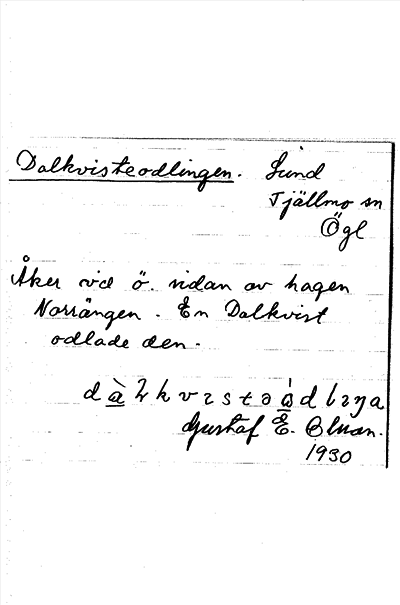 Dalkvisteodlingen. Sund
Tjällmo sn
Ögl
Åker vid ö. sidan av hagen
Norrängen. En Dalkvist
odlade den.
Gustaf E.
1930